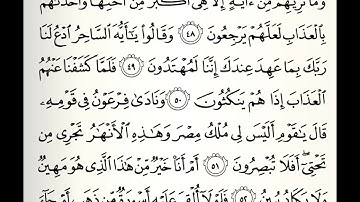 وَمَا نُرِيهِم مِّنْ ءَايَةٍ إِلَّا هِىَ أَكْبَرُ مِنْ أُخْتِهَا وَأَخَذْنَٰهُم
بِٱلْعَذَابِ لَعَلَّهُمْ يَرْجِعُونَ ٤٨ وَقَالُوا۟ يَٰٓأَيُّهَ ٱلسَّاحِرُ ٱدْعُ لَنَا
رَبَّكَ بِمَا عَهِدَ عِندَكَ إِنَّنَا لَمُهْتَدُونَ ٤٩ فَلَمَّا كَشَفْنَا عَنْهُمُ
ٱلْعَذَابَ إِذَا هُمْ يَنكُثُونَ ٥٠ وَنَادَىٰ فِرْعَوْنُ فِى قَوْمِهِۦ
قَالَ يَٰقَوْمِ أَلَيْسَ لِى مُلْكُ مِصْرَ وَهَٰذِهِ ٱلْأَنْهَٰرُ تَجْرِى مِن
تَحْتِىٓ أَفَلَا تُبْصِرُونَ ٥١ أَمْ أَنَا۠ خَيْرٌ مِّنْ هَٰذَا ٱلَّذِى هُوَ مَهِينٌ
وَلَا يَكَادُ يُبِينُ ٥٢ فَلَوْلَآ أُلْقِىَ عَلَيْهِ أَسْوِرَةٌ مِّن ذَهَبٍ أَوْ جَآءَ